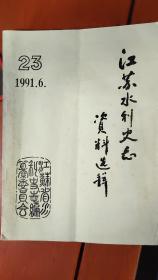 23
1991.6.
江苏水利史志
资料选辑
江苏省水
利史志编
纂委员会